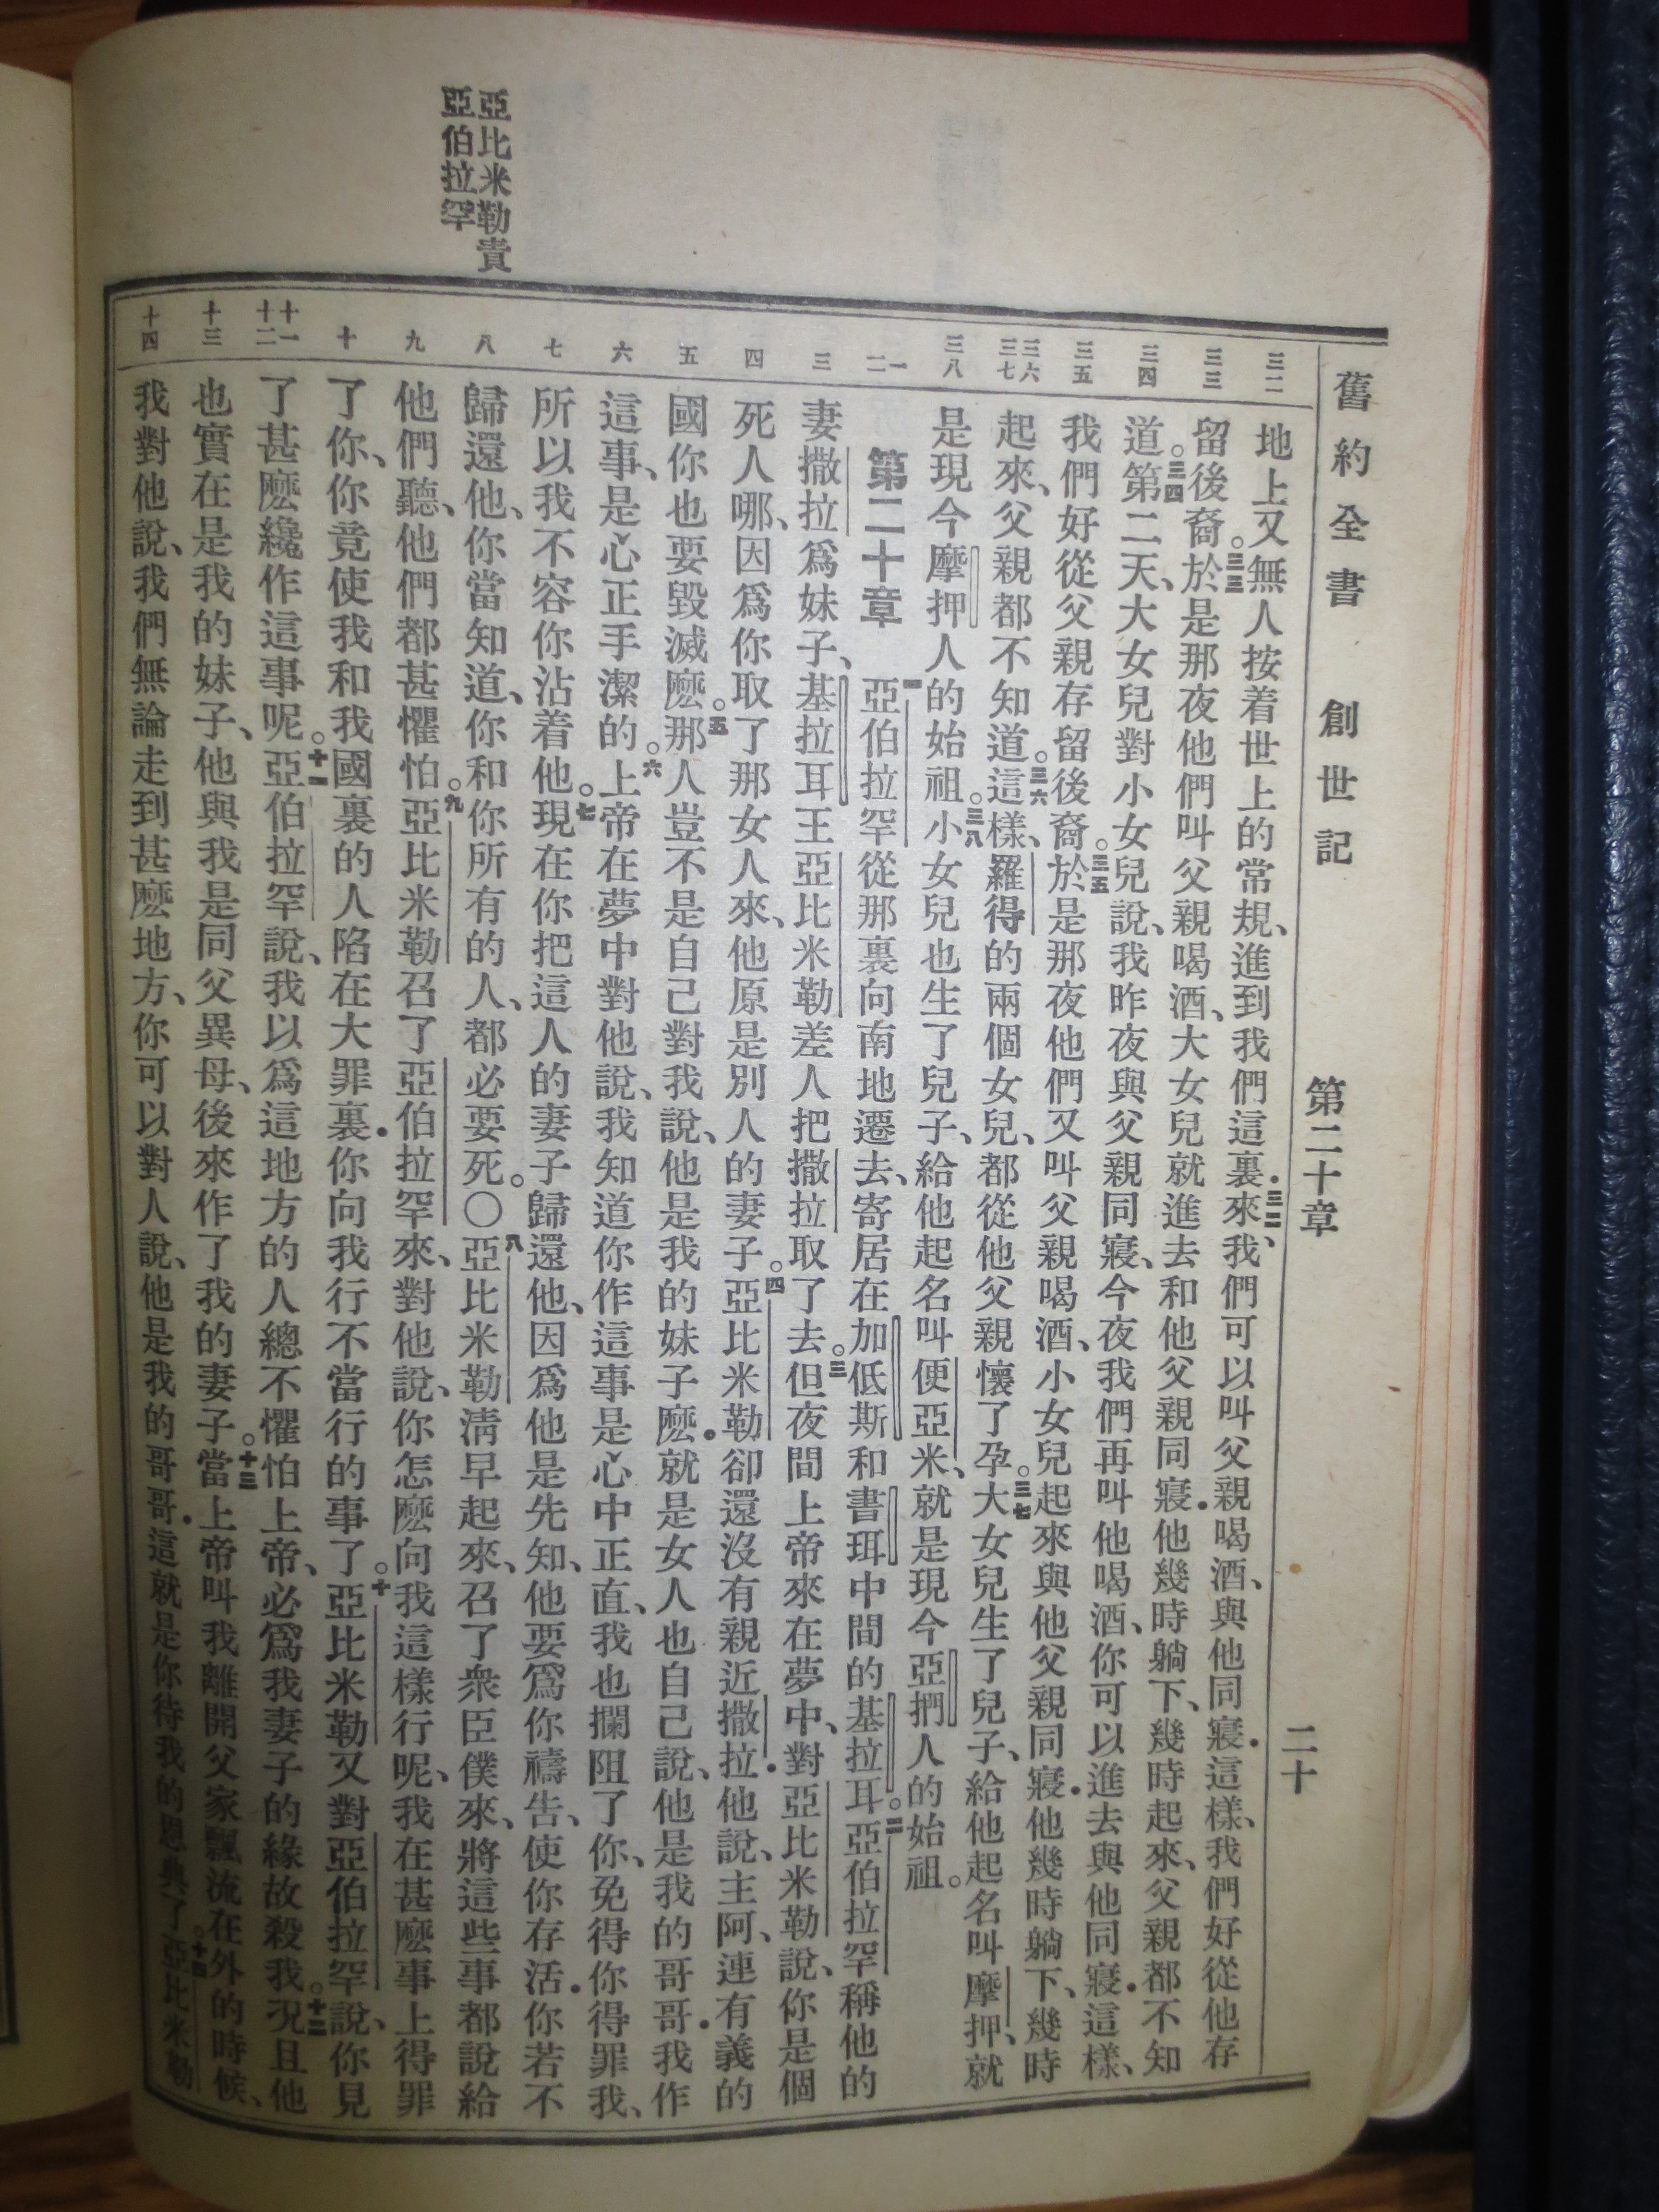 舊約全書 創世記 第二十章 二十
三二
三三
三四
三五
三六
三七
三八
一
二
三
四
五
六
七
八
九
十
十一
十二
十三
十四
地上又無人按着世上的常規、進到我們這裏來.三二我們可以叫父親喝酒、與他同寢.這樣、我們好從他存
留後裔。三三於是那夜他們叫父親喝酒、大女兒就進去和他父親同寢.他幾時躺下、幾時起來、父親都不知
道。三四第二天、大女兒對小女兒說、我昨夜與父親同寢、今夜我們再叫他喝酒、你可以進去與他同寢.這樣、
我們好從父親存留後裔。三五於是那夜他們又叫父親喝酒、小女兒起來與他父親同寢.他幾時躺下、幾時
起來、父親都不知道。三六這樣、羅得的兩個女兒、都從他父親懷了孕。三七大女兒生了兒子、給他起名叫摩押、就
是現今摩押人的始祖。三八小女兒也生了兒子、給他起名叫便亞米、就是現今亞捫人的始祖。
第二十章 一亞伯拉罕從那裏向南地遷去、寄居在加低斯和書珥中間的基拉耳。二亞伯拉罕稱他的
妻撒拉爲妹子、基拉耳王亞比米勒差人把撒拉取了去。三但夜間上帝來在夢中、對亞比米勒說、你是個
死人哪、因爲你取了那女人來、他原是別人的妻子。四亞比米勒卻還沒有親近撒拉.他說、主阿、連有義的
國你也要毀滅麽。五那人豈不是自己對我說、他是我的妹子麽.就是女人也自己說、他是我的哥哥.我作
這事、是心正手潔的。六上帝在夢中對他說、我知道你作這事是心中正直、我也攔阻了你、免得你得罪我、
所以我不容你沾着他。七現在你把這人的妻子歸還他、因爲他是先知、他要爲你禱告、使你存活.你若不
歸還他、你當知道、你和你所有的人、都必要死。〇八亞比米勒清早起來、召了衆臣僕來、將這些事都說給
他們聽、他們都甚懼怕。九亞比米勒召了亞伯拉罕來、對他說、你怎麽向我這樣行呢、我在甚麽事上得罪
了你、你竟使我和我國裏的人陷在大罪裏.你向我行不當行的事了。十亞比米勒又對亞伯拉罕說、你見
了甚麽纔作這事呢。十一亞伯拉罕說、我以爲這地方的人總不懼怕上帝、必爲我妻子的緣故殺我。十二况且他
也實在是我的妹子、他與我是同父異母、後來作了我的妻子。十三當上帝叫我離開父家飄流在外的時候、
我對他說、我們無論走到甚麽地方、你可以對人說、他是我的哥哥.這就是你待我的恩典了。十四亞比米勒
亞比米勒責
亞伯拉罕